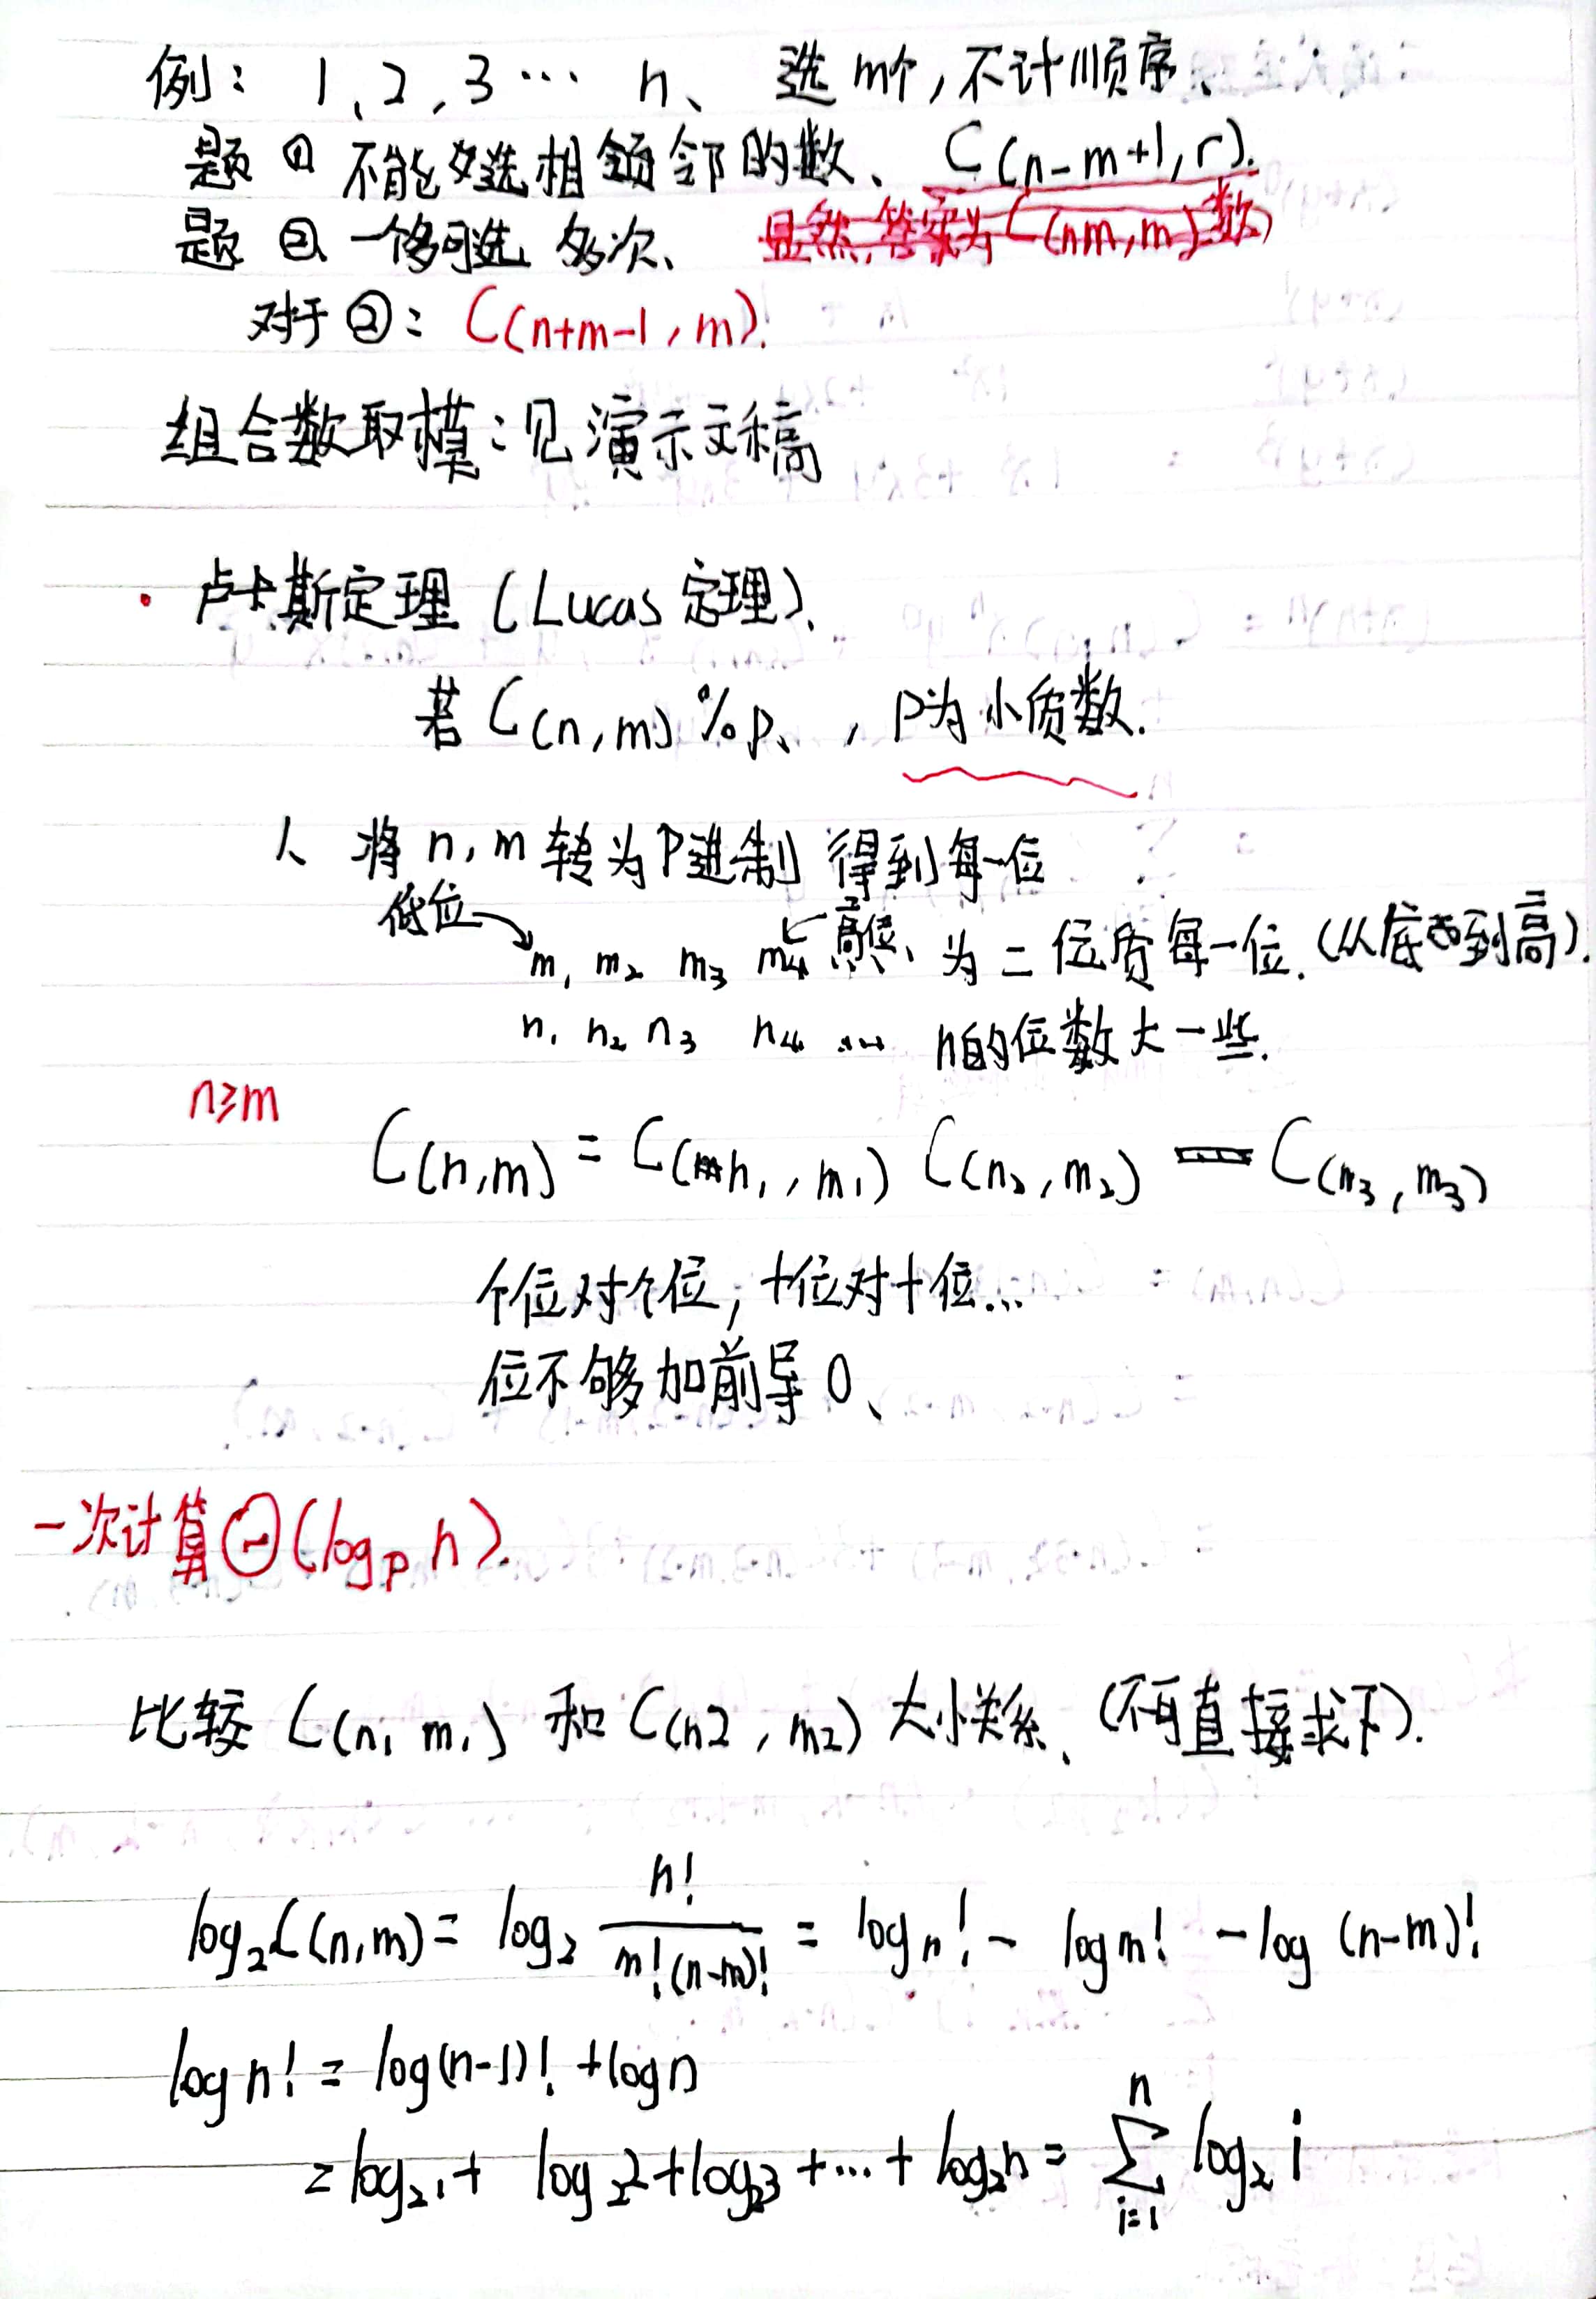 例：1、2，3… n、 选m个，不计顺序、
题① 不能选相邻的数、 C(n-m+1, r).
题② 一个可选 多次、
对于②：C(n+m-1, m).
组合数取模：见演示文稿
· 卢卡斯定理 (Lucas 定理)、
若 C(n, m) %p、, P为小质数.
将 n, m 转为P进制 得到每一位
低位 高位、
m1 m2 m3 m4 为二位质每一位. (从底到高).
n1 n2 n3 n4 … n的位数大一些.
n≥m
C(n,m) = C(n1, m1) C(n2, m2) C(n3, m3)
个位对个位，十位对十位…
位不够加前导0、
一次计算 (log_p n).
比较 C(n1 m1) 和 C(n2, m2) 大小关系、(不可直接求下).
log₂C(n,m) = log₂ n!/(m!(n-m)!) = log n! - log m! - log (n-m)!
log n! = log(n-1)! + log n
= log₂1 + log₂2 + log₂3 + … + log₂n = ∑_{i=1}^{n} log₂ i